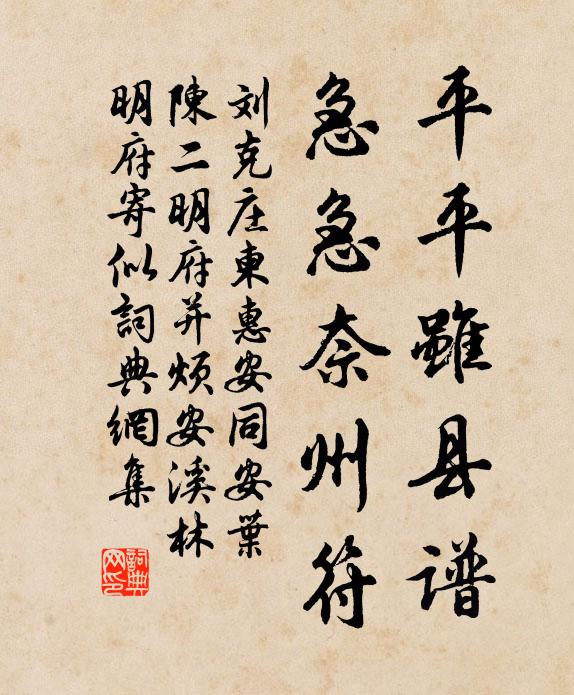 平平雖县谱
急急奈州符
刘克庄東惠安同安葉
陳二明府并煩安溪林
明府寄似詞典網集
詞典网印